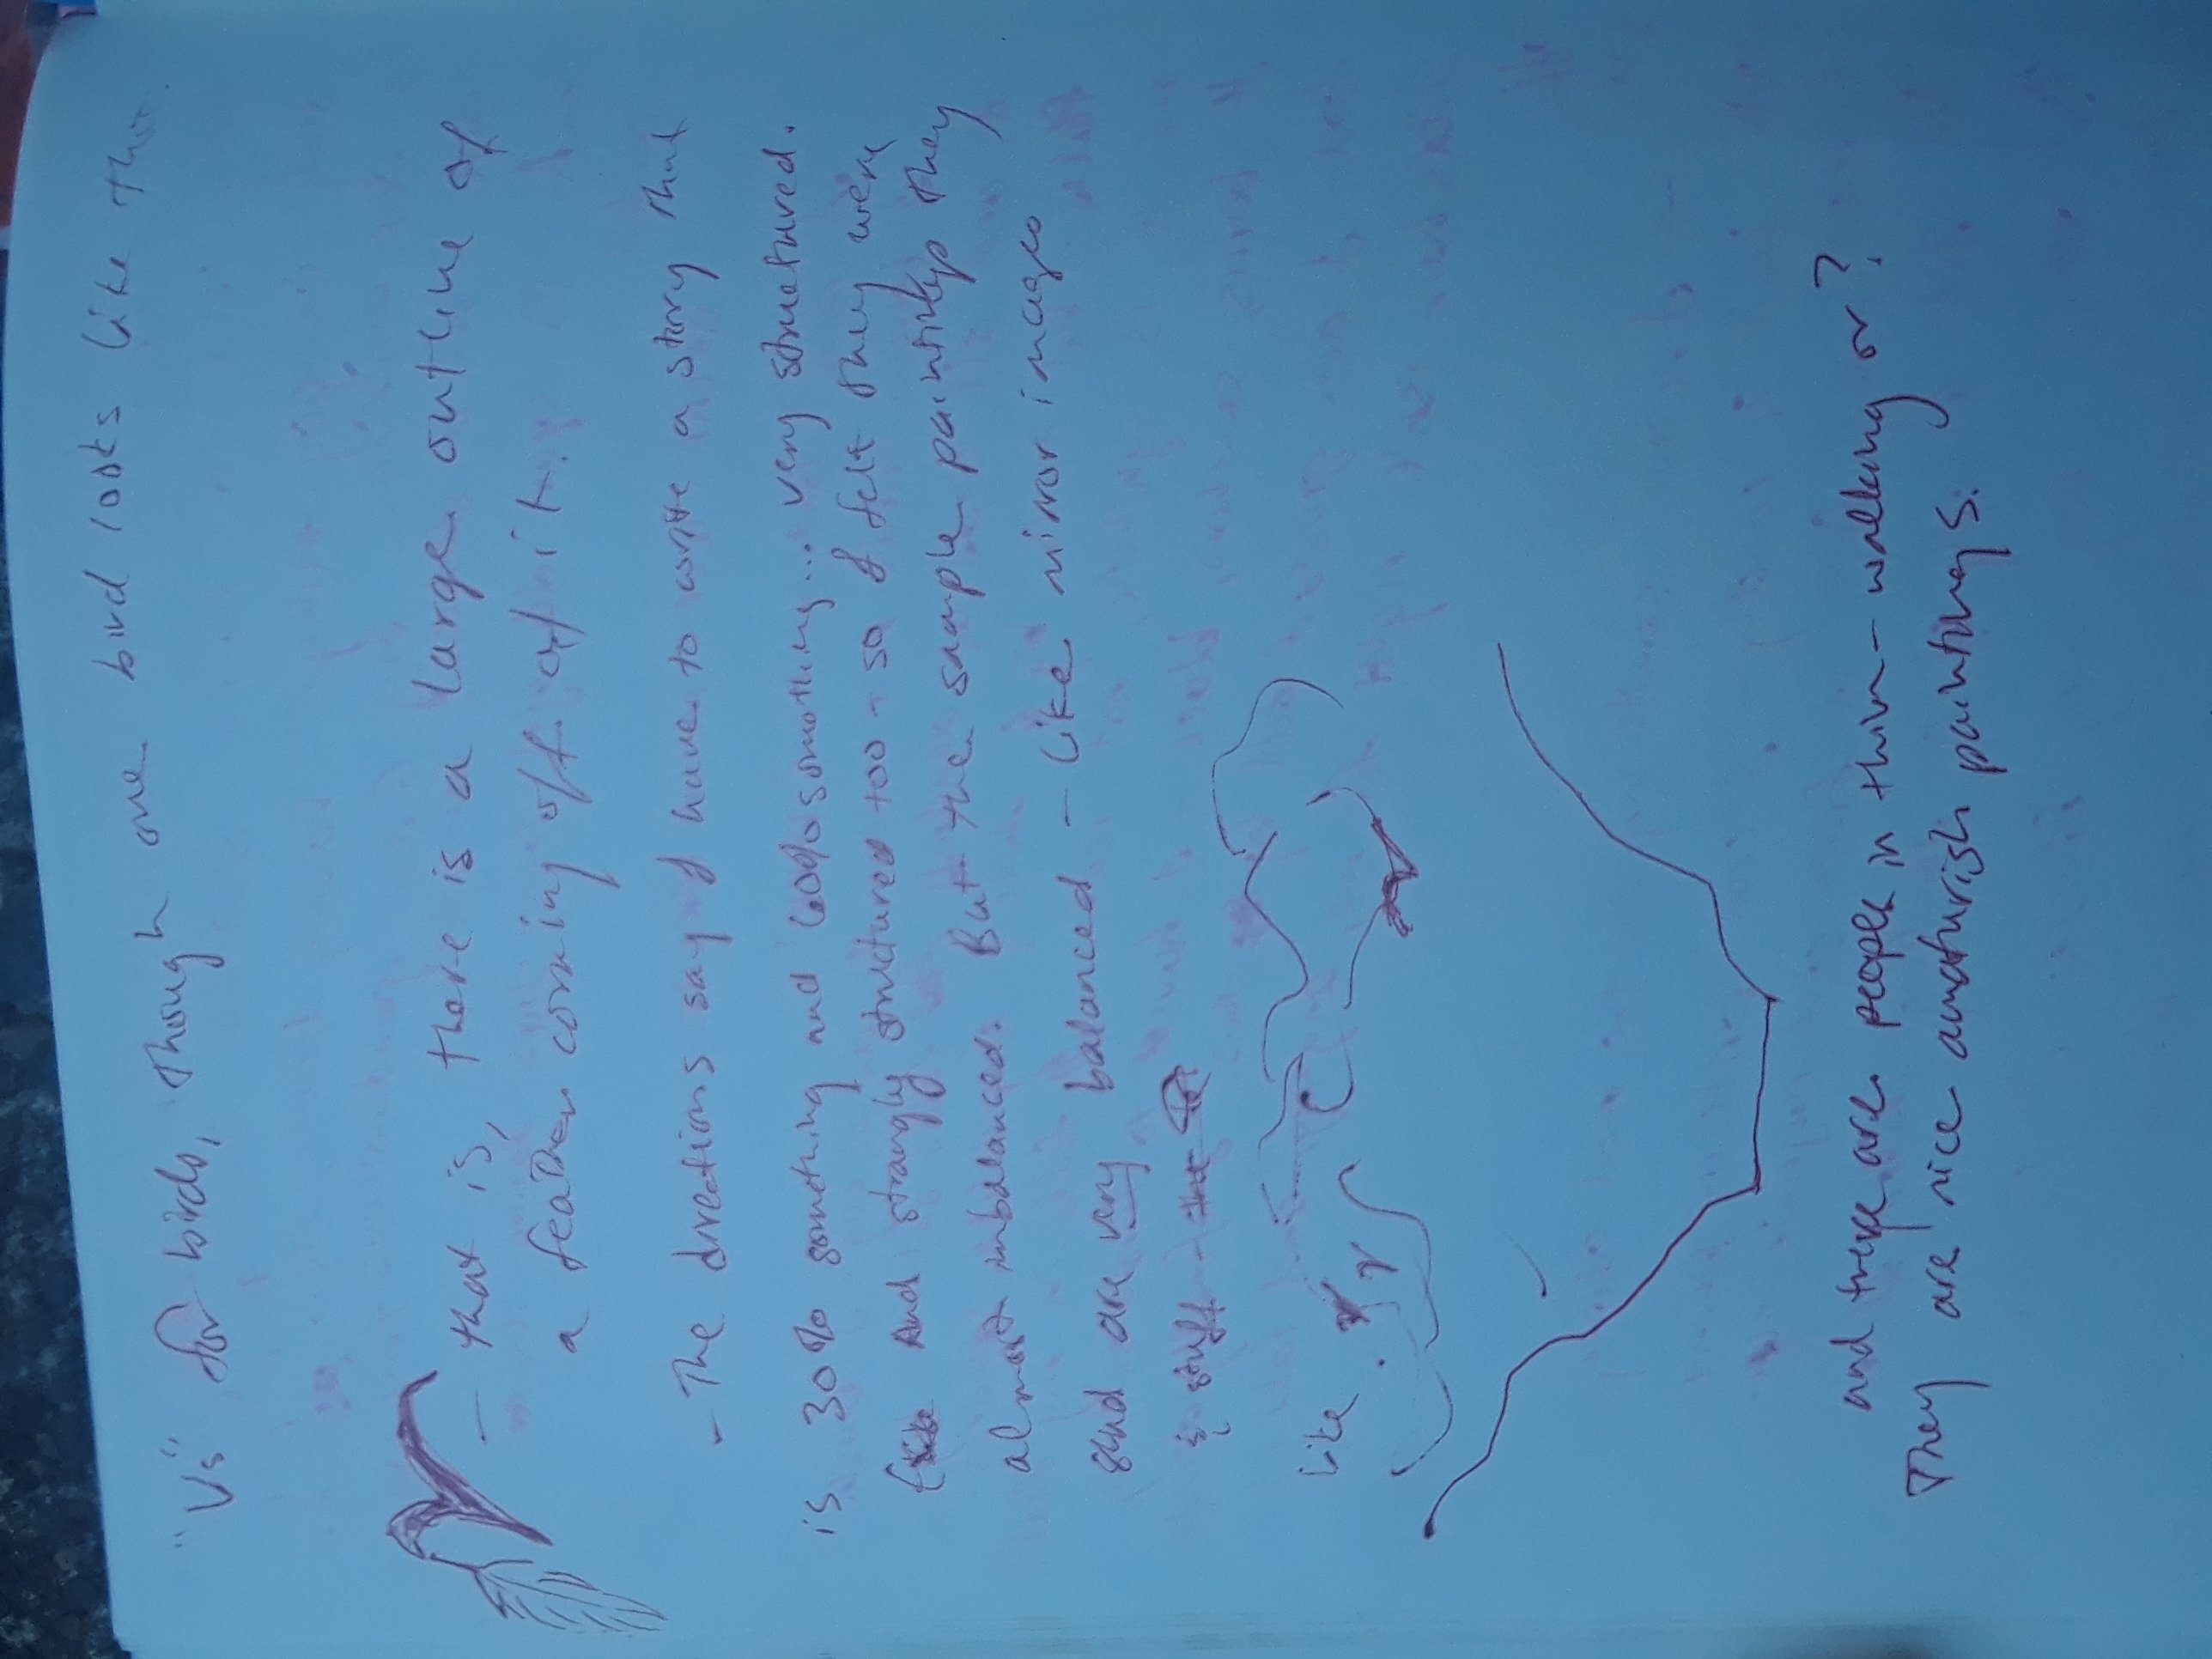 "Vs" for birds, though one bird looks like that
— that is, there is a large outline of
a feather coming off of it.
– The directions say I have to write a story that
is 30% something and 60% something... very structured.
And strangly structured too – so I felt they were
almost inbalanced. But the sample paintings they
send are very balanced – like mirror images
& stuff
like
and there are people in them – walking or?
They are nice amaturish paintings.